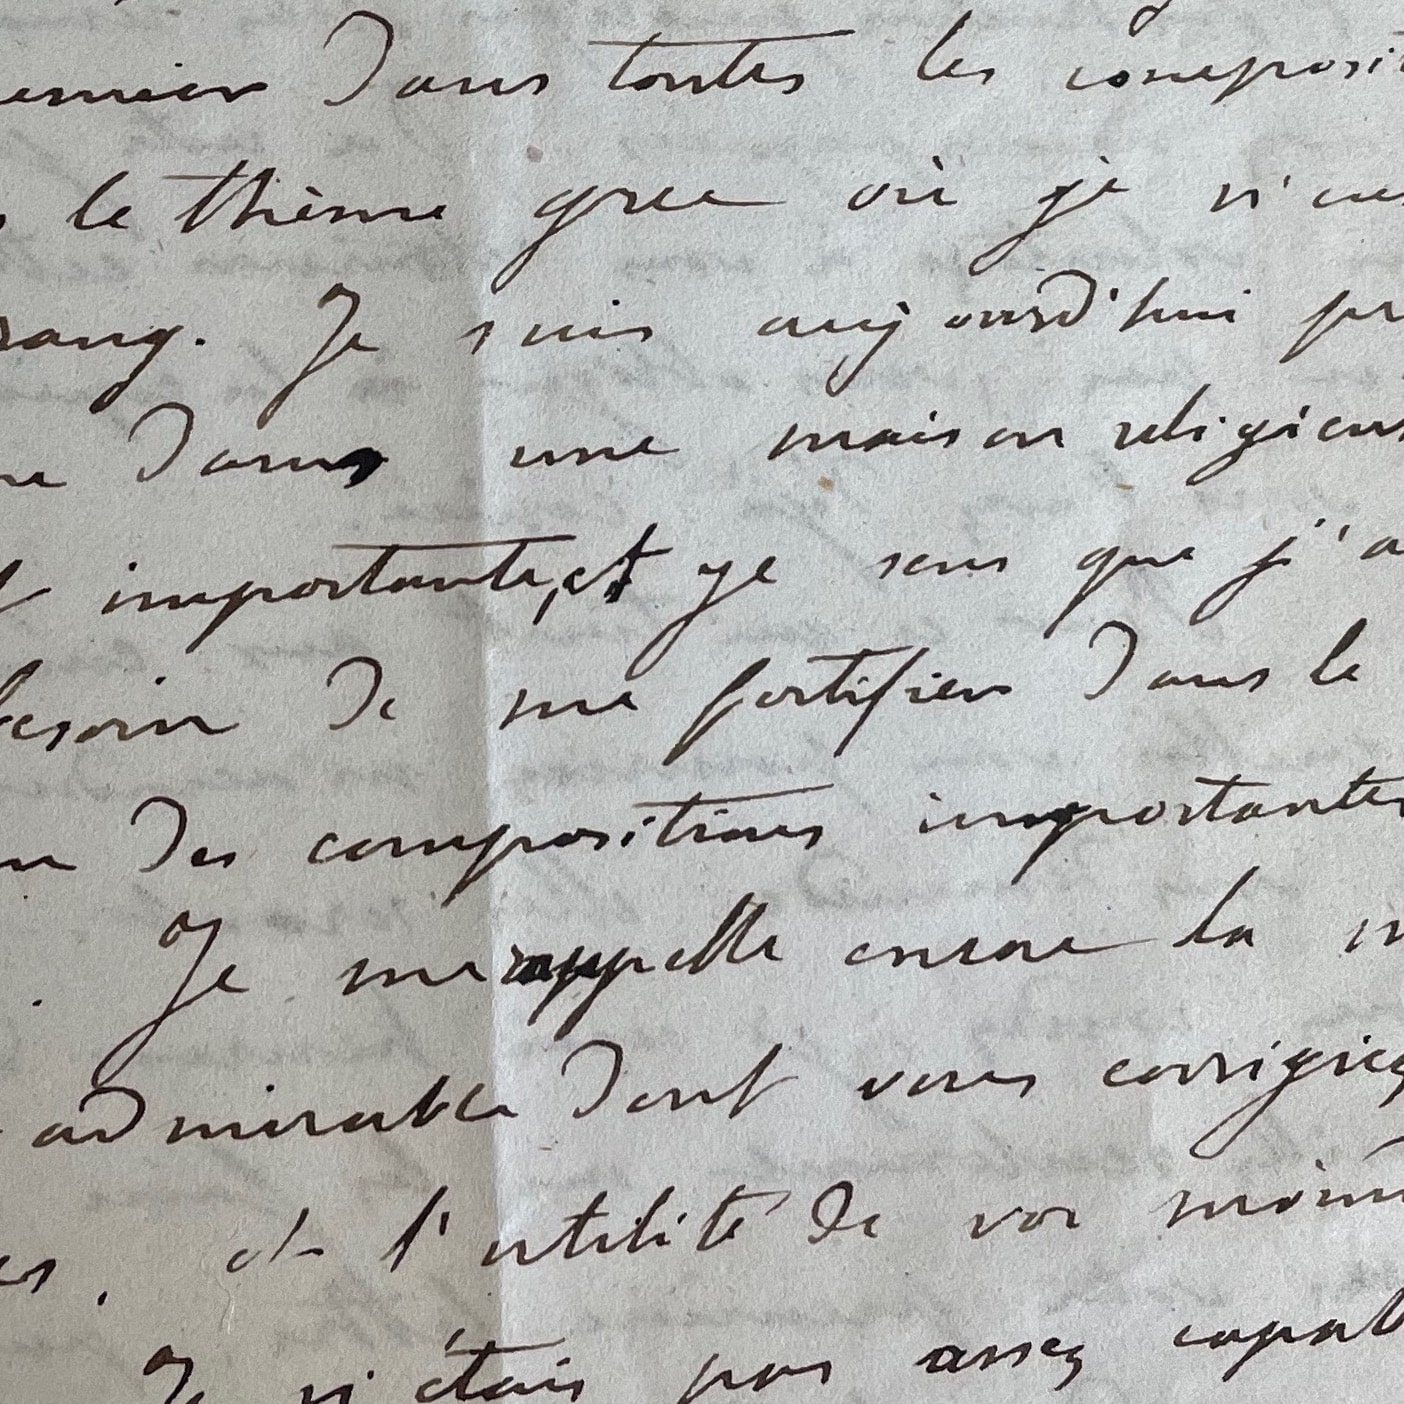 emier dans toutes les composit
le thème grec où je n'eus
rang. Je suis aujourd'hui pr
dans une maison religieus
importante, et je sens que j'a
besoin de me fortifier dans le
des compositions importantes
. Je me rappelle encore la m
admirable dont vous corrigiez
es, et l'utilité de vos moin
Je n'étais pas assez capab